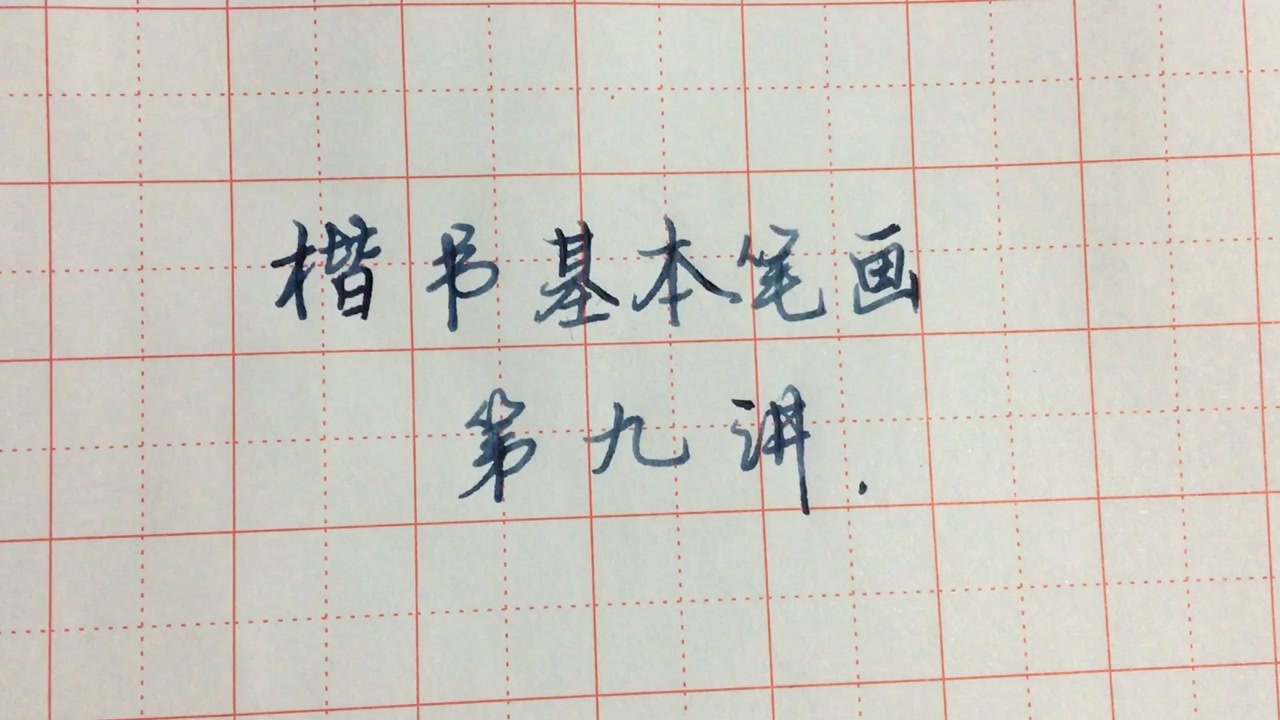 楷书基本笔画
第九讲.